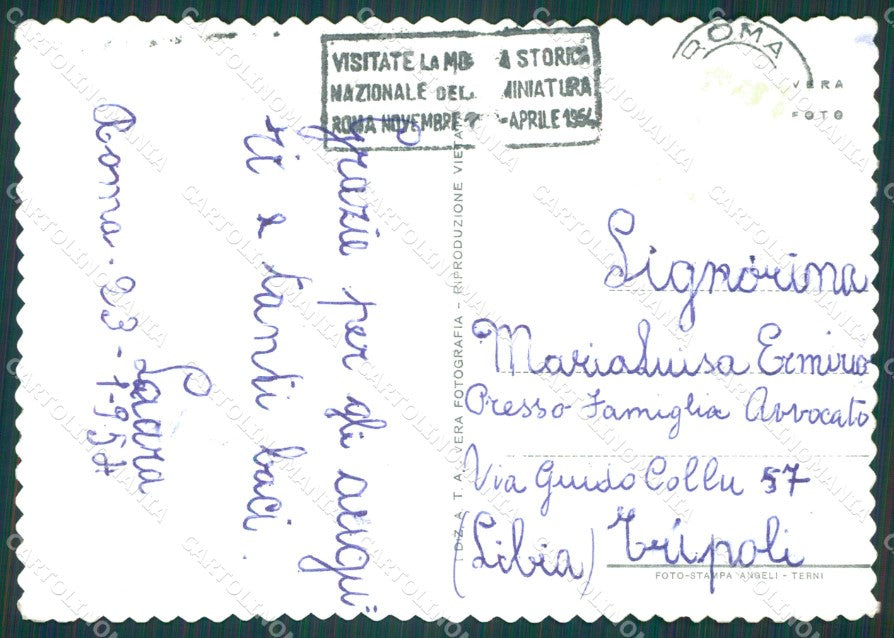 VISITATE LA MO A STORICA
NAZIONALE DEL MINIATURA
ROMA NOVEMBRE -APRILE 1954
ROMA
VERA
FOTO
Roma. 23-1-957
Grazie per gli augu
ri e tanti baci.
Laura
DZ. A. T. A. VERA FOTOGRAFIA - RIPRODUZIONE VIETA
Signorina
MariaLuisa Ermirio
Presso Famiglia Avvocato
Via Guido Collu 57
(Libia) Tripoli
FOTO-STAMPA ANGELI - TERNI
CARTOLINOMANIA